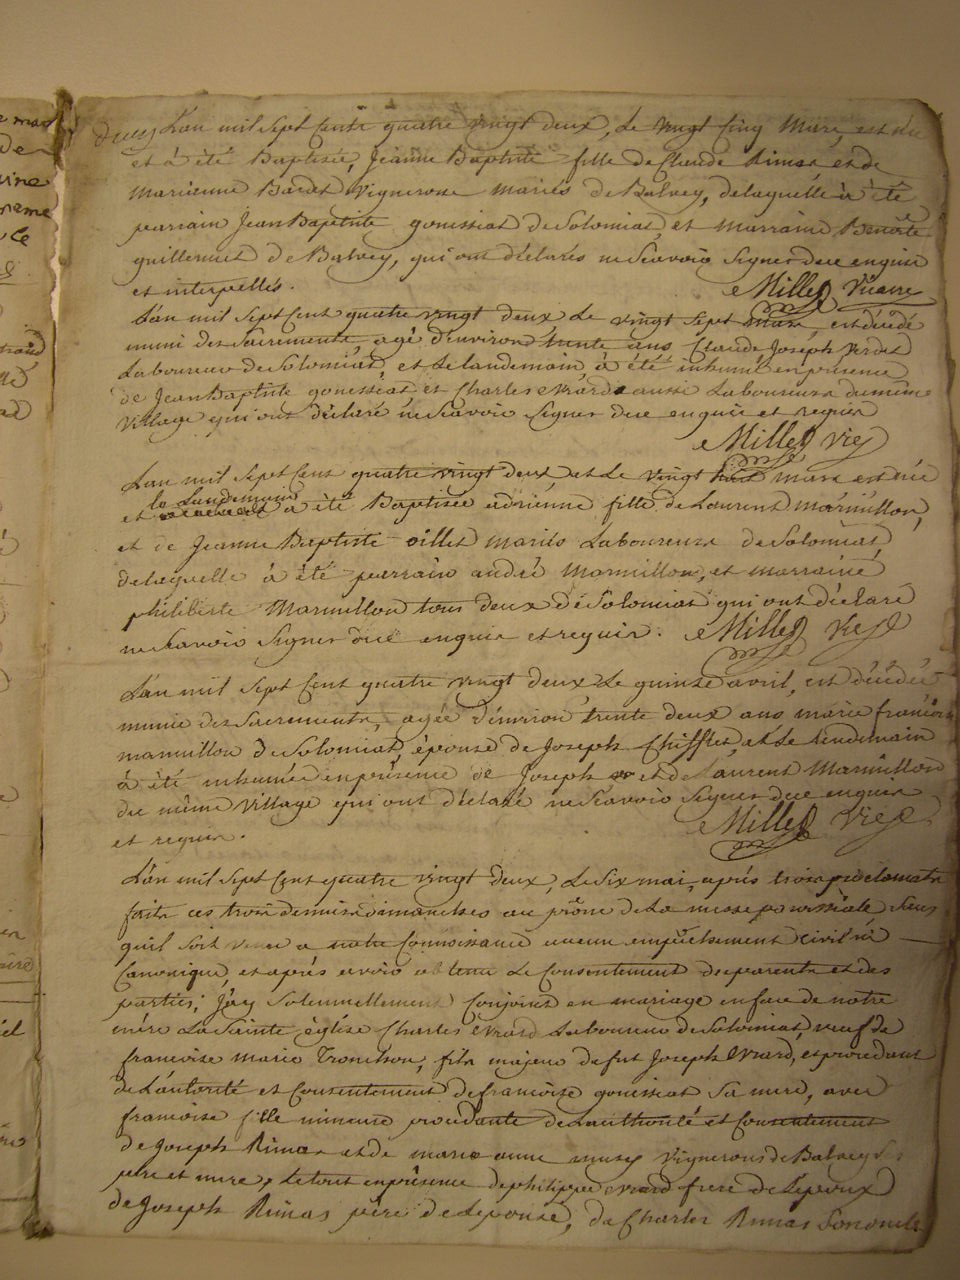 L'an mil Sept Cents quatre vingt deux, Le vingt Cinq Mars, est née
et à été Baptisée, Jeanne Baptiste fille de Claude Rimas et de
marienne vigneronse mariés de Balvey, delaquelle à été
parrain Jean Baptiste goncssiat de Solomiat, et marraine Benoite
guillermet de Balvey, qui ont déclarés ne Scavoir Signer due enquis
et interpellés. Millet Vicaire
L'an mil Sept Cent quatre vingt deux Le vingt Sept mars, est décédé
muni des Sacrements, agé d'environ trente ans Claude Joseph
Laboureur de Solomiat, et Le landemain à été inhumé en présence
de Jean Baptiste goncssiat et Charles Evrard aussi Laboureurs du même
village qui ont déclaré ne Scavoir Signer due enquis et requis
Millet vic
L'an mil Sept Cent quatre vingt deux et Le vingt huit mars est née
le Landemain
et à été Baptisée adrienne fille de Laurent marmillon,
et de Jeanne Baptiste oillet mariés Laboureurs de Solomiat
delaquelle à été parrain andré Marmillon, et marraine
philiberte Marmillon tous deux de Solomiat qui ont déclaré
ne Scavoir Signer due enquis et requis. Millet vic
L'an mil Sept Cent quatre vingt deux Le quinze avril, est décédée
munie des Sacrements, agée d'environ trente deux ans marie françoise
marmillon de Solomiat, épouse de Joseph Chifflet, et Le lendemain
à été inhumée en présence de Joseph et de Laurent Marmillon
du même village qui ont déclaré ne Scavoir Signer due enquis
et requis. Millet vic
L'an mil Sept Cent quatre vingt deux, Le Six mai, après trois proclamations
faites ces trois derniers dimanches au prône de La messe paroissiale, Sans
quil Soit venu a notre Connoissance aucun empêchement civil ni
Canonique, et après avoir obtenu Le Consentement des parents et des
parties; j'ay Solemnellement Conjoint en mariage en face de notre
mère La Sainte église Charles Evrard Laboureur de Solomiat, veuf de
françoise marie Tronchon, fils majeur de fut Joseph Evrard, et procedant
de L'autorité et Consentement de françoise goncssiat Sa mere, avec
françoise fille mineure procedante de Lauthorité et Consentement
de Joseph Rimas et de marie anne musy vignerons de Balvey Ses
père et mere, Le tout en présence de philippe Evrard frere de L'epoux
de Joseph Rimas père de Lepouse, de Charles Rimas Son oncle